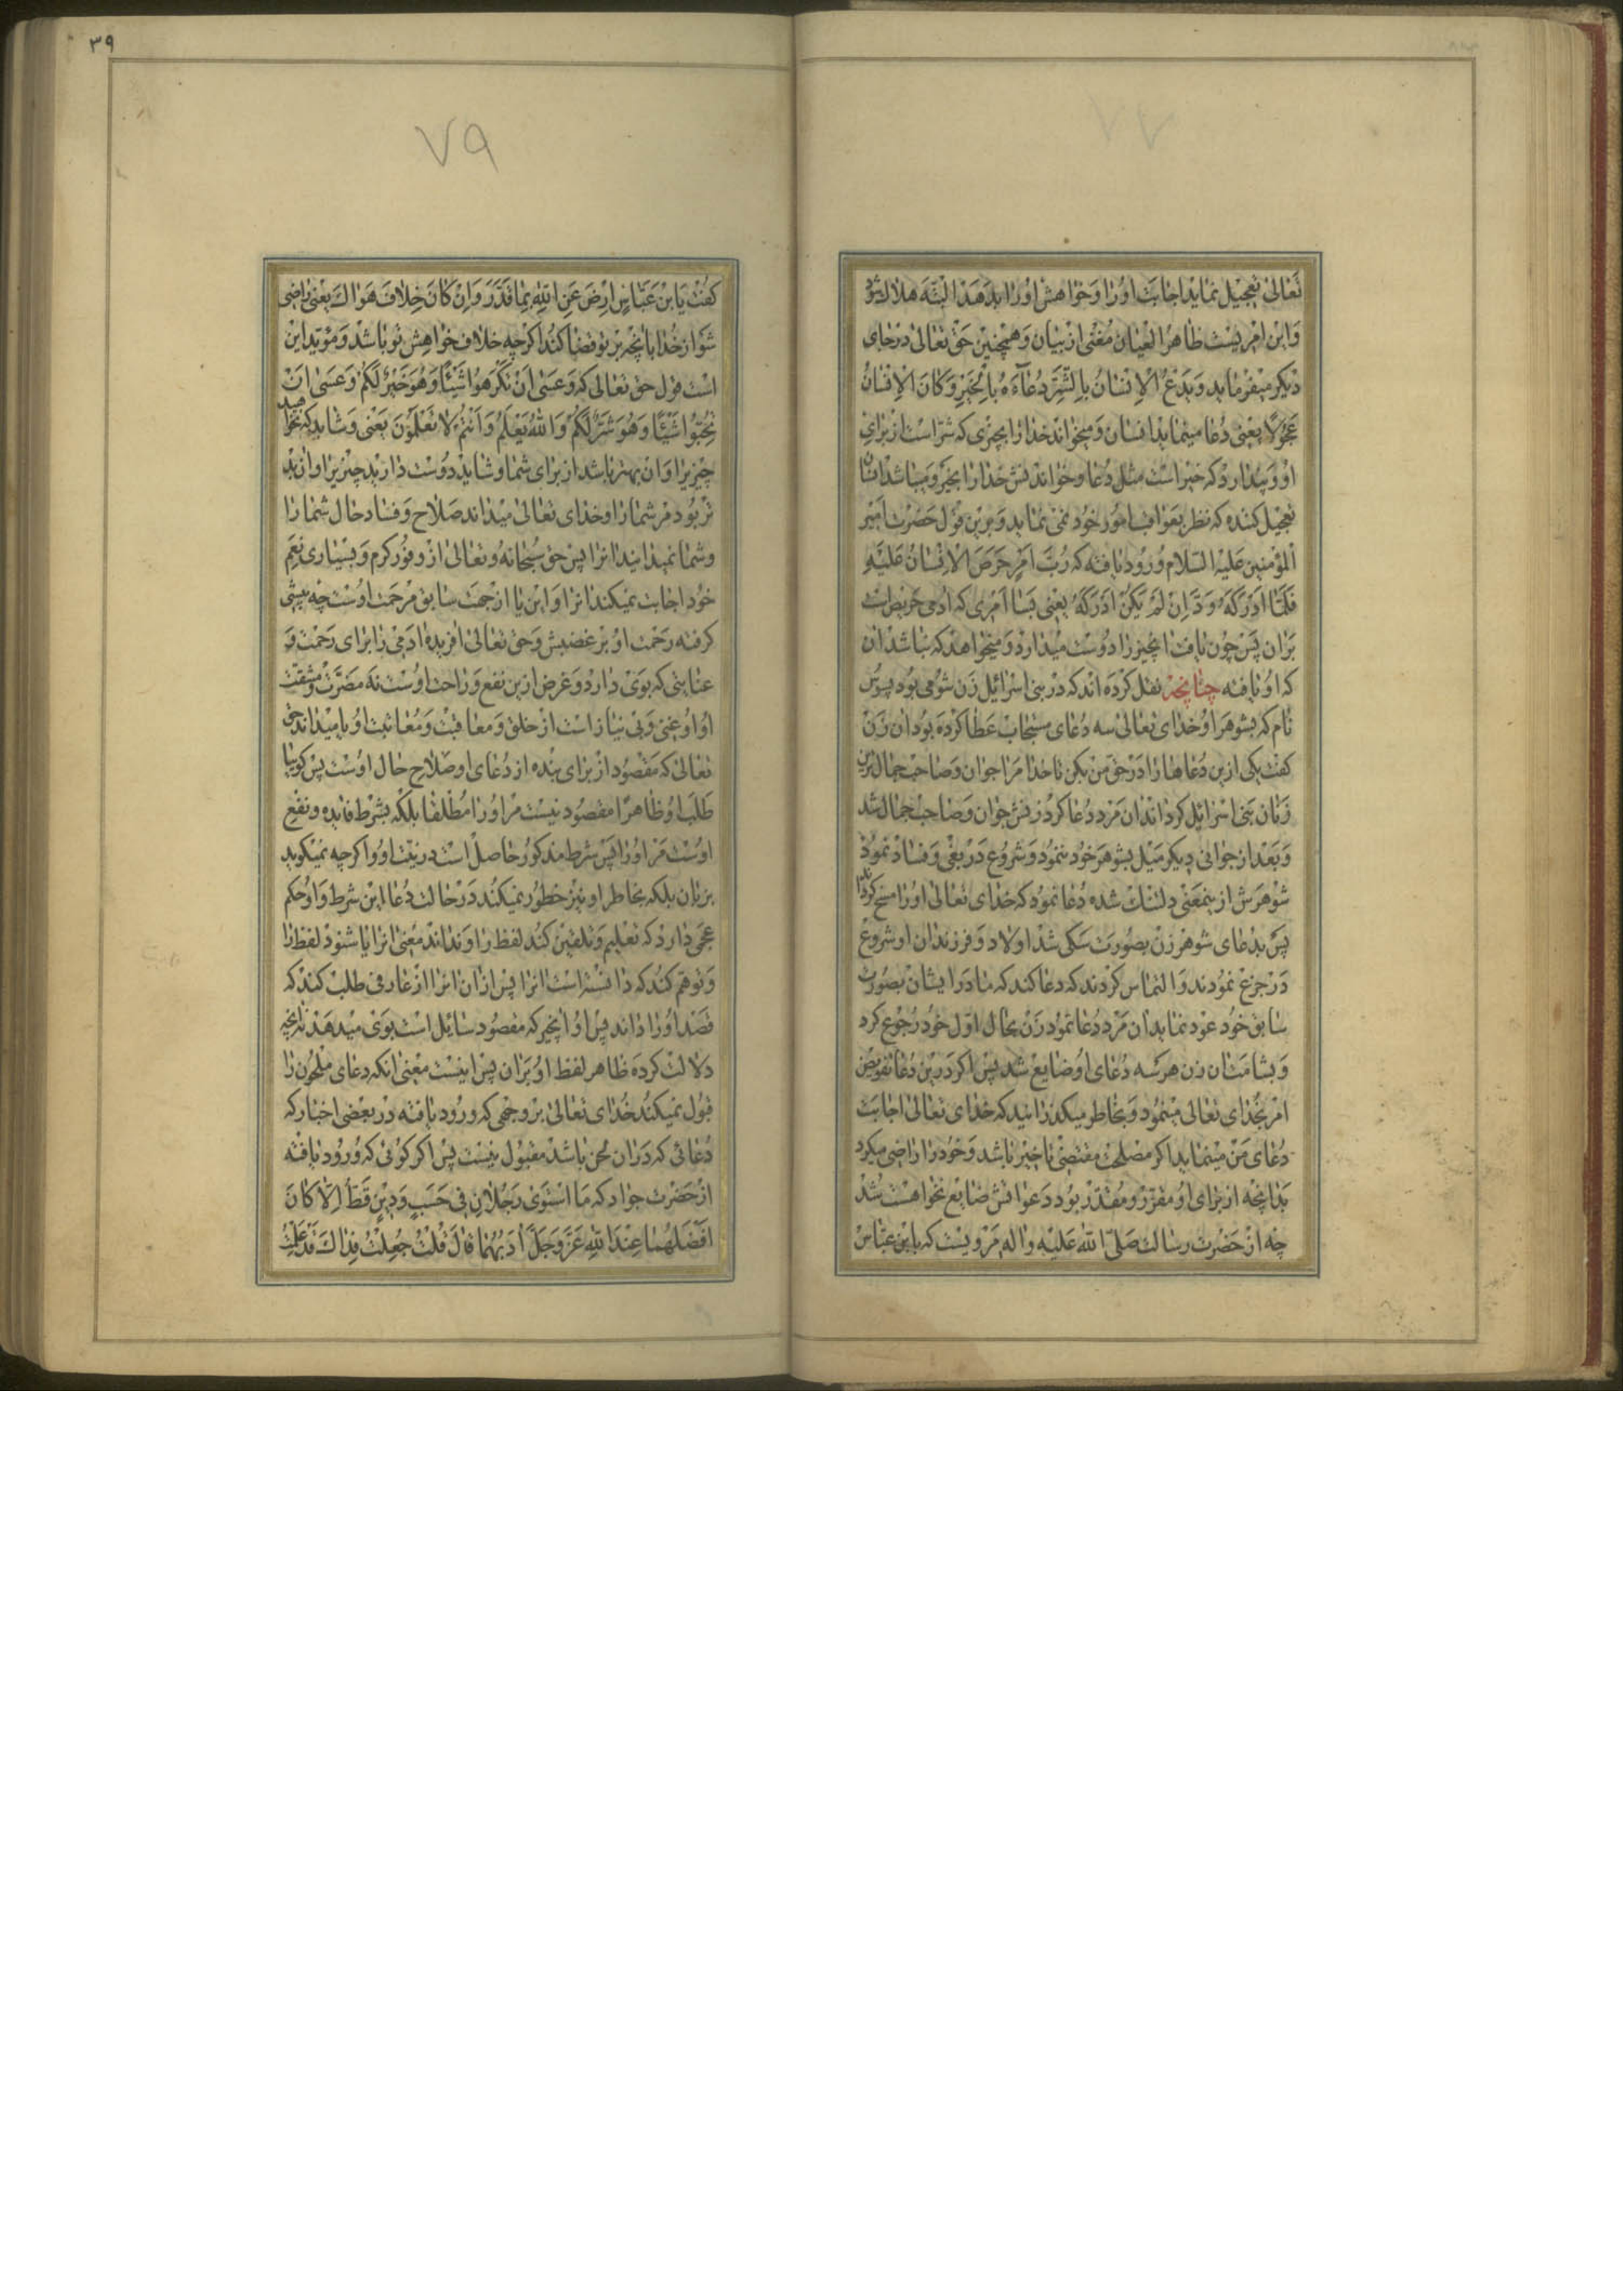 ٧٧
تَعالیٰ تعجیل نماید اجابت اورا و خواهش اورا بدهد البتّه هلاک شود
و این امریست ظاهر العیان مغنی از بیان و همچنین حق تعالیٰ در جای
دیکر میفرماید وَیَدْعُ الْاِنْسٰانُ بِالشَّرِّ دُعٰآءَهُ بِالْخَیْرِ وَکٰانَ الْاِنْسٰانُ
عَجُولًا یعنی دعا مینماید انسان و میخواند خدا را بچیزی که شرّ است از برای
او و پندارد که خیر است مثل دعا و خواندنش خدا را بخیر و میباشد انسان
تعجیل کننده که نظر بعواقب امور خود نمی نماید و برین قول حضرت امیر
المؤمنین علیه السلام ورود یافته که رُبَّ اَمْرٍ حَرَصَ الْاِنْسٰانُ عَلَیْهِ
فَلَمّٰا اَدْرَکَهُ وَدَّ اِنْ لَمْ یَکُنْ اَدْرَکَهُ یعنی بسا امری که ادمی حریص است
بران پس چون یافت انچیز را دوست میدارد و میخواهد که نباشد ان
که او یافته چنانچه نقل کرده اند که در بنی اسرائیل زن شومی بود بسوس
نام که بشوهر او خدای تعالیٰ سه دعای مستجاب عطا کرده بود ان زن
کفت یکی ازین دعاها را در حق من بکن تا خدا مرا جوان و صاحب جمال‌ترین
زنان بنی اسرائیل کرداند ان مرد دعا کرد زنش جوان و صاحب جمال شد
و بعد از جوانی دیکر میل بشوهر خود ننمود و شروع در بغی و فساد نمود
شوهرش از ینمعنی دلتنک شده دعا نمود که خدای تعالیٰ اورا مسخ کرداند
پس بدعای شوهر زن بصورت سکی شد اولاد و فرزندان او شروع
در جزع نمودند و التماس کردند که دعا کند که مادر ایشان بصورت
سابق خود عود نماید ان مرد دعا نمود زن بحال اوّل خود رجوع کرد
و بشامت ان زن هر سه دعای او ضایع شد پس اکر درین دعا تفویض
امر بخدای تعالی مینمود و بخاطر میکذرانید که خدای تعالیٰ اجابت
دعای من مینماید اکر مصلحت مقتضی یا خیر باشد و خود را راضی میکرد
بدانچه از برای او مقرّر و مقدّر بود دعوانش ضایع نخواهست شد
چه از حضرت رسالت صلّی الله علیه واله مرویست که بابن عبّاس
٣٩
٧٩
کفت یَا بْنَ عَبّٰاسٍ اِرْضَ عَنِ اللّٰهِ بِمٰا قَدَّرَ وَاِنْ کٰانَ خِلٰافَ هَوٰاکَ یعنی راضی
شو از خدا بانچه بر تو قضا کند اکرچه خلاف خواهش تو باشد و مؤیّد این
است قول حق تعالی که وَعَسیٰ اَنْ تَکْرَهُوا شَیْئًا وَهُوَ خَیْرٌ لَکُمْ وَعَسیٰ اَنْ
تُحِبُّوا شَیْئًا وَهُوَ شَرٌّ لَکُمْ وَاللّٰهُ یَعْلَمُ وَاَنْتُمْ لٰا تَعْلَمُونَ یعنی و شاید که نخواهید
چیزیرا و ان بهتر باشد از برای شما و شاید دوست دارید چیزیرا و ان بد
تر بود مر شما را و خدای تعالیٰ میداند صلاح و فساد حال شما را
و شما نمیدانید انرا پس حق سبحانه و تعالیٰ از وفور کرم و بسیاری نعم
خود اجابت نمیکند انرا و این یا از جهت سابق مرحمت اوست چه پیشی
کرفته رحمت او بر غضبش و حق تعالیٰ افریده ادمی را برای رحمت و
عنایتی که بوی دارد و غرض ازین نفع و راحت اوست نه مضرّت و مشقت
او و او غنی و بی نیاز است از خلق و معاقبت و معاتبت او یا میداند حق
تعالیٰ که مقصود از برای بنده از دعای او صلاح حال اوست پس کویا
طلب او ظاهرًا مقصود نیست مر او را مطلقا بلکه بشرط فایده و نفع
اوست مر او را پس شرط مذکور حاصل است در نیّت او و اکرچه نمیکوید
بزبان بلکه بخاطر او نیز خطور نمیکند در حالت دعا این شرط و او حکم
عجمی دارد که تعلیم و تلقین کند لفظ را و نداند معنی انرا یا شنود لفظ را
و توهّم کند که دانسته است انرا پس از ان انرا از عارفی طلب کند که
قصد او را داند پس او انچه که مقصود سایل است بوی میدهد نه انچه
دلالت کرده ظاهر لفظ او بران پس اینست معنی انکه دعای ملحون را
قبول نمیکند خدای تعالیٰ بر وجهی که ورود یافته در بعضی اخبار که
دعائی که دران لحن باشد مقبول نیست پس اکر کوئی که ورود یافته
از حضرت جواد که مَا اسْتَویٰ رَجُلٰانِ فِی حَسَبٍ وَدِینٍ قَطُّ اِلّٰا کٰانَ
اَفْضَلُهُمٰا عِنْدَ اللّٰهِ عَزَّ وَجَلَّ اٰدَبُهُمٰا قٰالَ قُلْتُ جُعِلْتُ فِدٰاکَ قَدْ عَلِمْتُ